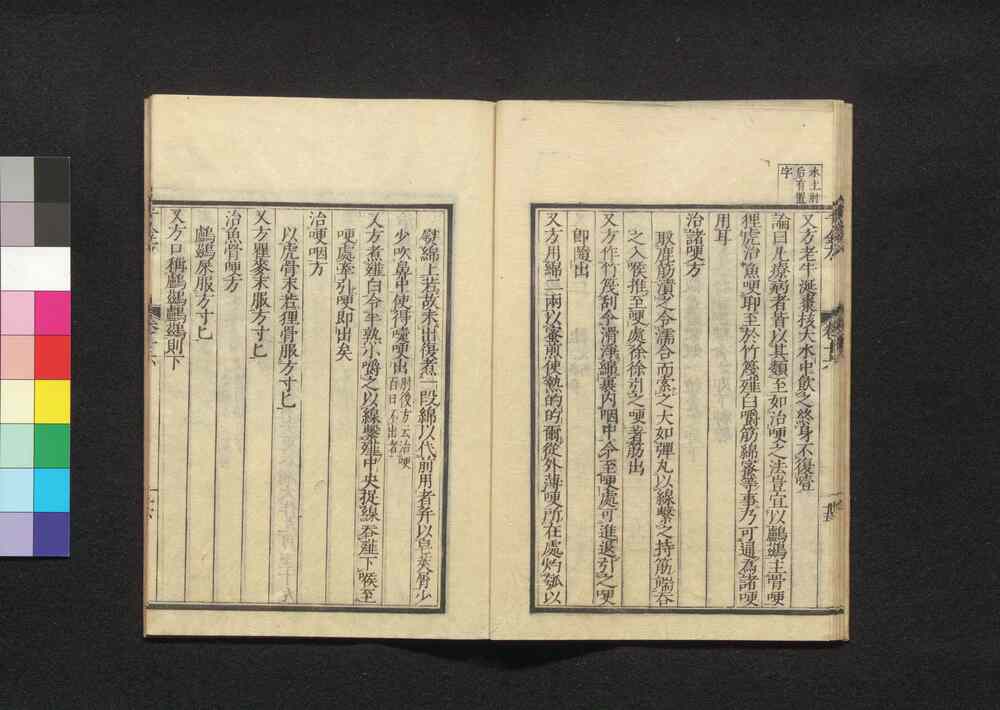 又方老牛涎棗核大水中飲之終身不復噎
論曰凡療病者皆以其類至如治哽之法豈宜以鸕鷀主骨哽
狸虎治魚哽耶至於竹篾薤白嚼筋綿蜜等事乃可通為諸哽
用耳
治諸哽方
取鹿筋漬之令濡合而索之大如彈丸以線繫之持筋端吞
之入喉推至哽處徐徐引之哽著筋出
又方作竹篾刮令滑淨綿裹內咽中令至哽處可進退引之哽
即隨出
又方用綿二兩以蜜煎使熱的的爾從外薄哽所在處灼瓠以
熨綿上若故未出復煮一段綿以代前用者并以皂莢屑少
少吹鼻中使得嚏哽出肘後方云治哽百日不出者
又方煮薤白令半熟小嚼之以線繫薤中央捉線吞薤下喉至
哽處牽引哽即出矣
治哽咽方
以虎骨末若狸骨服方寸匕
又方瞿麥末服方寸匕
治魚骨哽方
鸕鷀屎服方寸匕
又方口稱鸕鷀鸕鷀則下